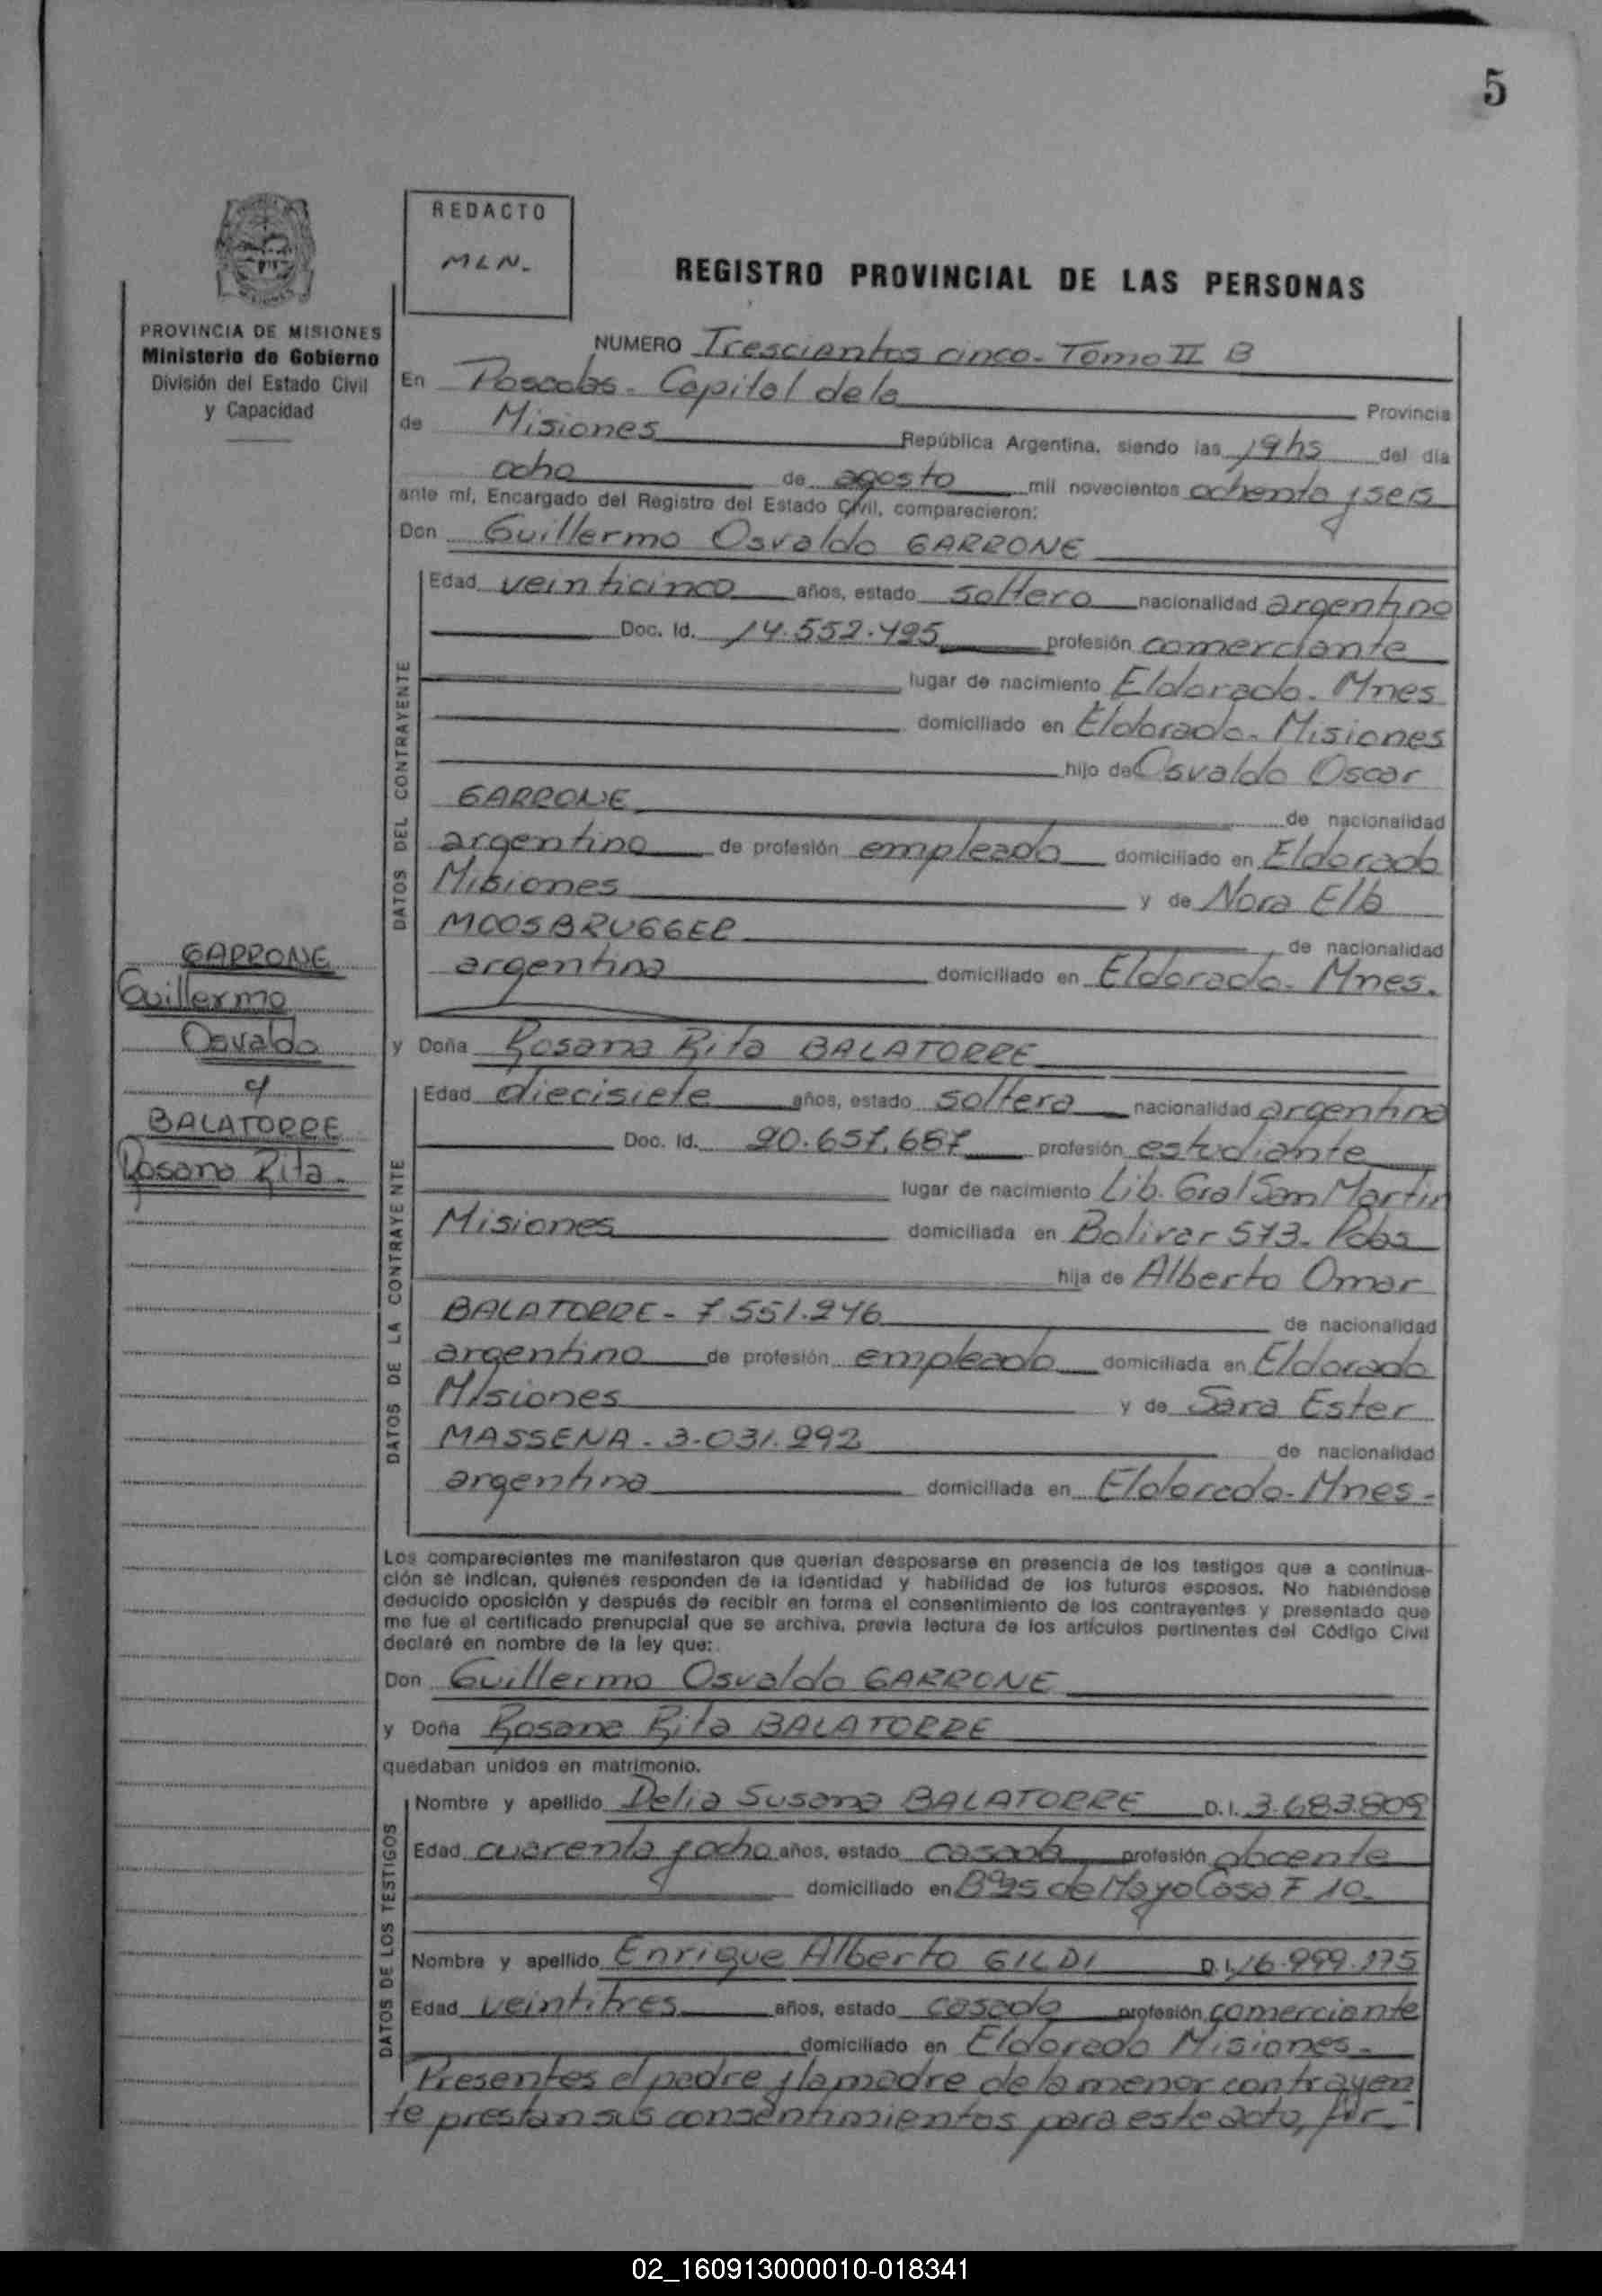 5
REDACTO
MLN.
REGISTRO PROVINCIAL DE LAS PERSONAS
PROVINCIA DE MISIONES
Ministerio de Gobierno
División del Estado Civil
y Capacidad
NUMERO Trescientos cinco - Tomo II B
En Posadas - Capital de la Provincia
de Misiones República Argentina, siendo las 19 hs del día
ocho de agosto mil novecientos ochenta y seis
ante mí, Encargado del Registro del Estado Civil, comparecieron:
Don Guillermo Osvaldo GARRONE
DATOS DEL CONTRAYENTE
Edad veinticinco años, estado soltero nacionalidad argentino
Doc. Id. 14.552.495 profesión comerciante
lugar de nacimiento Eldorado - Mnes
domiciliado en Eldorado - Misiones
hijo de Osvaldo Oscar
GARRONE de nacionalidad
argentino de profesión empleado domiciliado en Eldorado
Misiones y de Nora Elba
MOOSBRUGGER de nacionalidad
argentina domiciliado en Eldorado - Mnes.
GARRONE
Guillermo
Osvaldo
y
BALATORRE
Rosana Rita -
y Doña Rosana Rita BALATORRE
DATOS DE LA CONTRAYENTE
Edad diecisiete años, estado soltera nacionalidad argentina
Doc. Id. 20.657.687 profesión estudiante
lugar de nacimiento Lib. Gral San Martin
Misiones domiciliada en Bolivar 573 - Pdas
hija de Alberto Omar
BALATORRE - 7.551.246 de nacionalidad
argentino de profesión empleado domiciliada en Eldorado
Misiones y de Sara Ester
MASSENA - 3.031.292 de nacionalidad
argentina domiciliada en Eldorado - Mnes -
Los comparecientes me manifestaron que querían desposarse en presencia de los testigos que a continua-
ción se indican, quienes responden de la identidad y habilidad de los futuros esposos. No habiéndose
deducido oposición y después de recibir en forma el consentimiento de los contrayentes y presentado que
me fue el certificado prenupcial que se archiva, previa lectura de los artículos pertinentes del Código Civil
declaré en nombre de la ley que:
Don Guillermo Osvaldo GARRONE
y Doña Rosana Rita BALATORRE
quedaban unidos en matrimonio.
DATOS DE LOS TESTIGOS
Nombre y apellido Delia Susana BALATORRE D.I. 3.683.809
Edad cuarenta y ocho años, estado casada profesión docente
domiciliado en Bº 25 de Mayo Casa F 10
Nombre y apellido Enrique Alberto GILDI D.I. 16.999.175
Edad veintitres años, estado casado profesión comerciante
domiciliado en Eldorado Misiones -
Presentes el padre y la madre de la menor contrayen
te prestan sus consentimientos para este acto, fir-
02_160913000010-018341